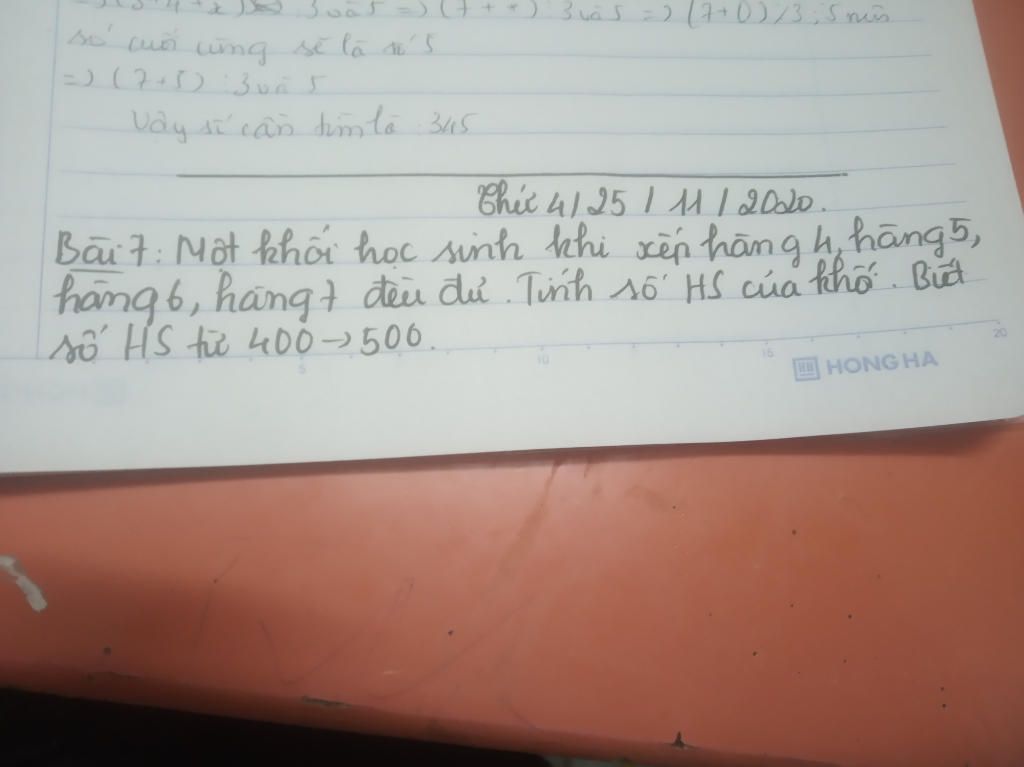 3 và 5 => (7 + *) : 3 và 5 => (7+0) :/ 3 ; 5 nên
số cuối cùng sẽ là số 5
=> (7+5) : 3 và 5
Vậy số cần tìm là : 345
Thứ 4 / 25 / 11 / 2020.
Bài 7 : Một khối học sinh khi xếp hàng 4, hàng 5,
hàng 6, hàng 7 đều đủ. Tính số HS của khố. Biết
số HS từ 400 -> 500.
5 10 15 20
HONG HA